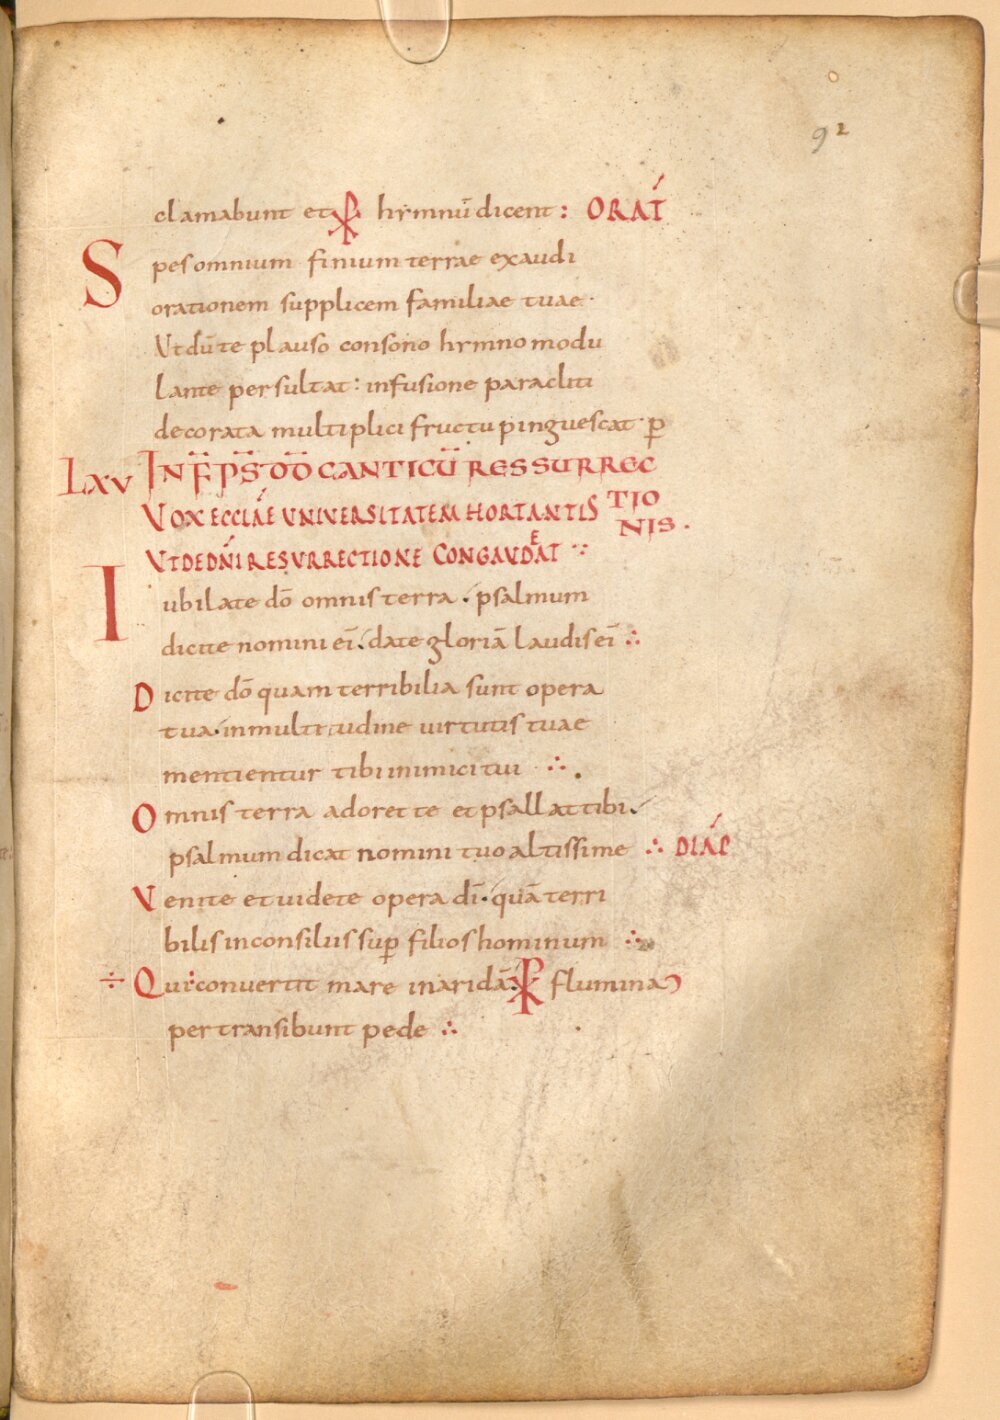 92
clamabunt et ⳩ hymnū dicent : ORAT̄
Spes omnium finium terrae exaudi
orationem supplicem familiae tuae ·
Ut dū te plauso consono hymno modu
lante persultat : infusione paracliti
decorata multiplici fructu pinguescat · p̄
LXV IN F̄ P̄S D̄D CANTICŪ RESSURREC
TIO
NIS .
VOX ECCLĀE UNIVERSITATEM HORTANTIS
UT DE DN̄I RESURRECTIONE CONGAUDEAT ∵
Iubilate dō omnis terra . psalmum
dicite nomini ei ̄ . date gloriā laudis ei ̄ ∴
Dicite dō quam terribilia sunt opera
tua · in multitudine uirtutis tuae
mentientur tibi inimici tui ∴ .
Omnis terra adoret te et psallat tibi .
psalmum dicat nomini tuo altissime ∴ DIAP̄
Venite et uidete opera dī · quā terri
bilis in consiliis sup̄ filios hominum ∴
÷ Qui convertit mare in aridā . ⳩ flumina
pertransibunt pede ∴